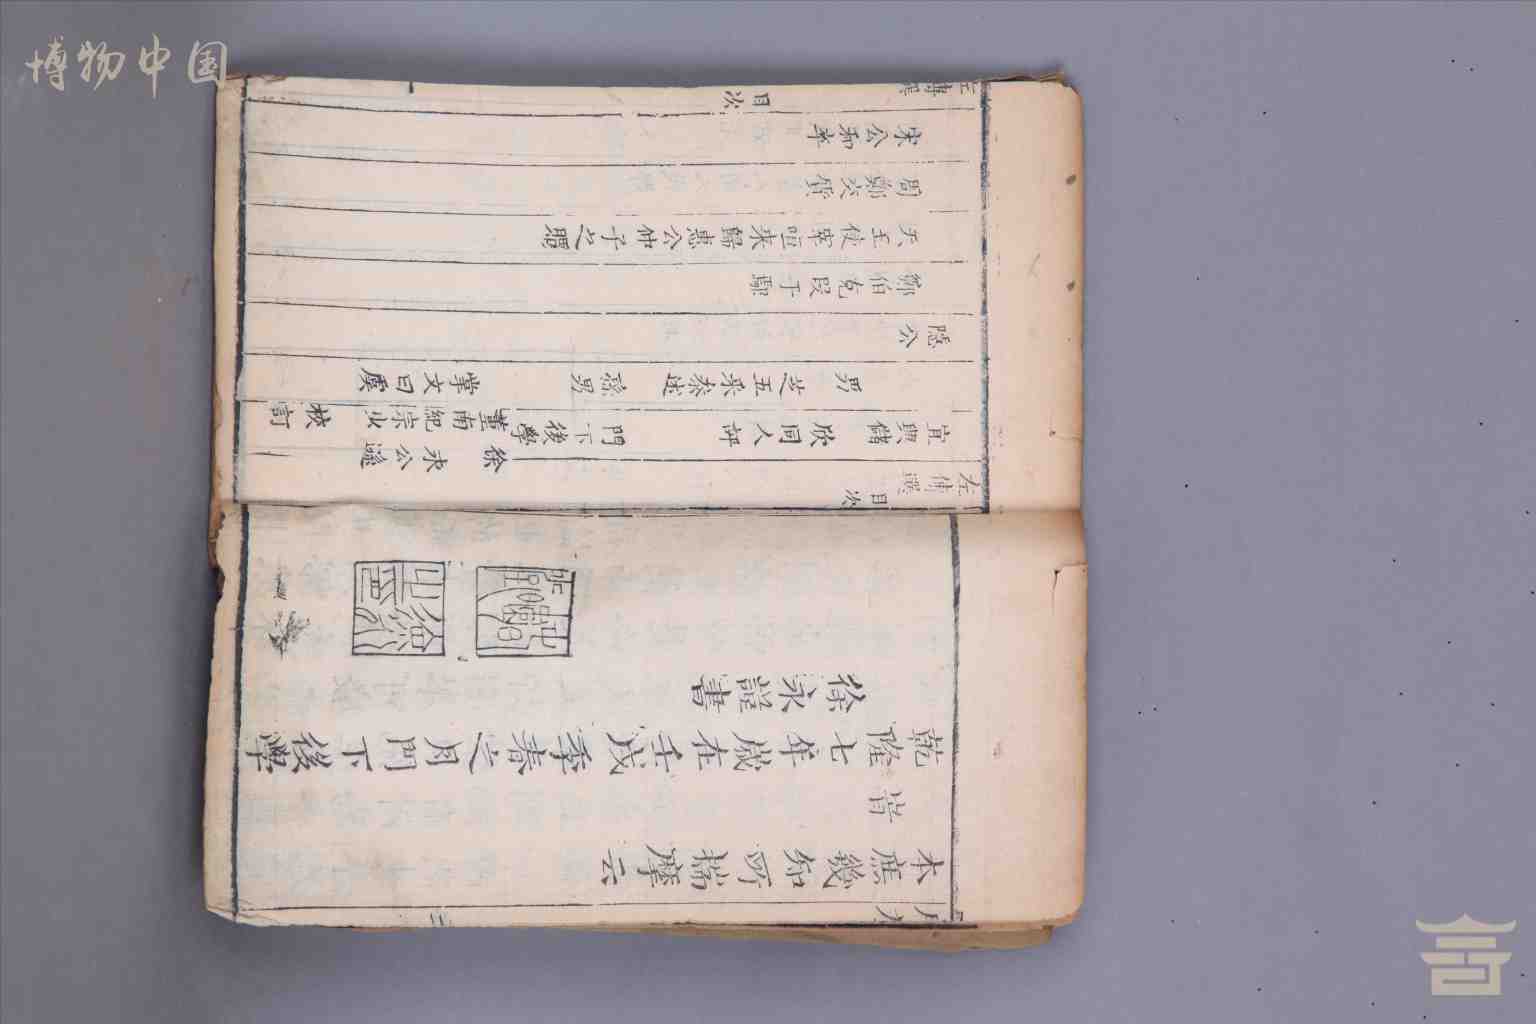 本庶幾知所揣摩云
旹
乾隆七年歲在壬戌季春之月門下後學
徐永 書
左傳選 目次
宜興儲欣同人評 門下後學 徐永公遜 董南紀宗少 校訂
男芝五采參述 孫男掌文曰虞
隱公
鄭伯克段于鄢
天王使宰咺来歸惠公仲子之賵
周鄭交質
宋公和卒
目次
博物中国